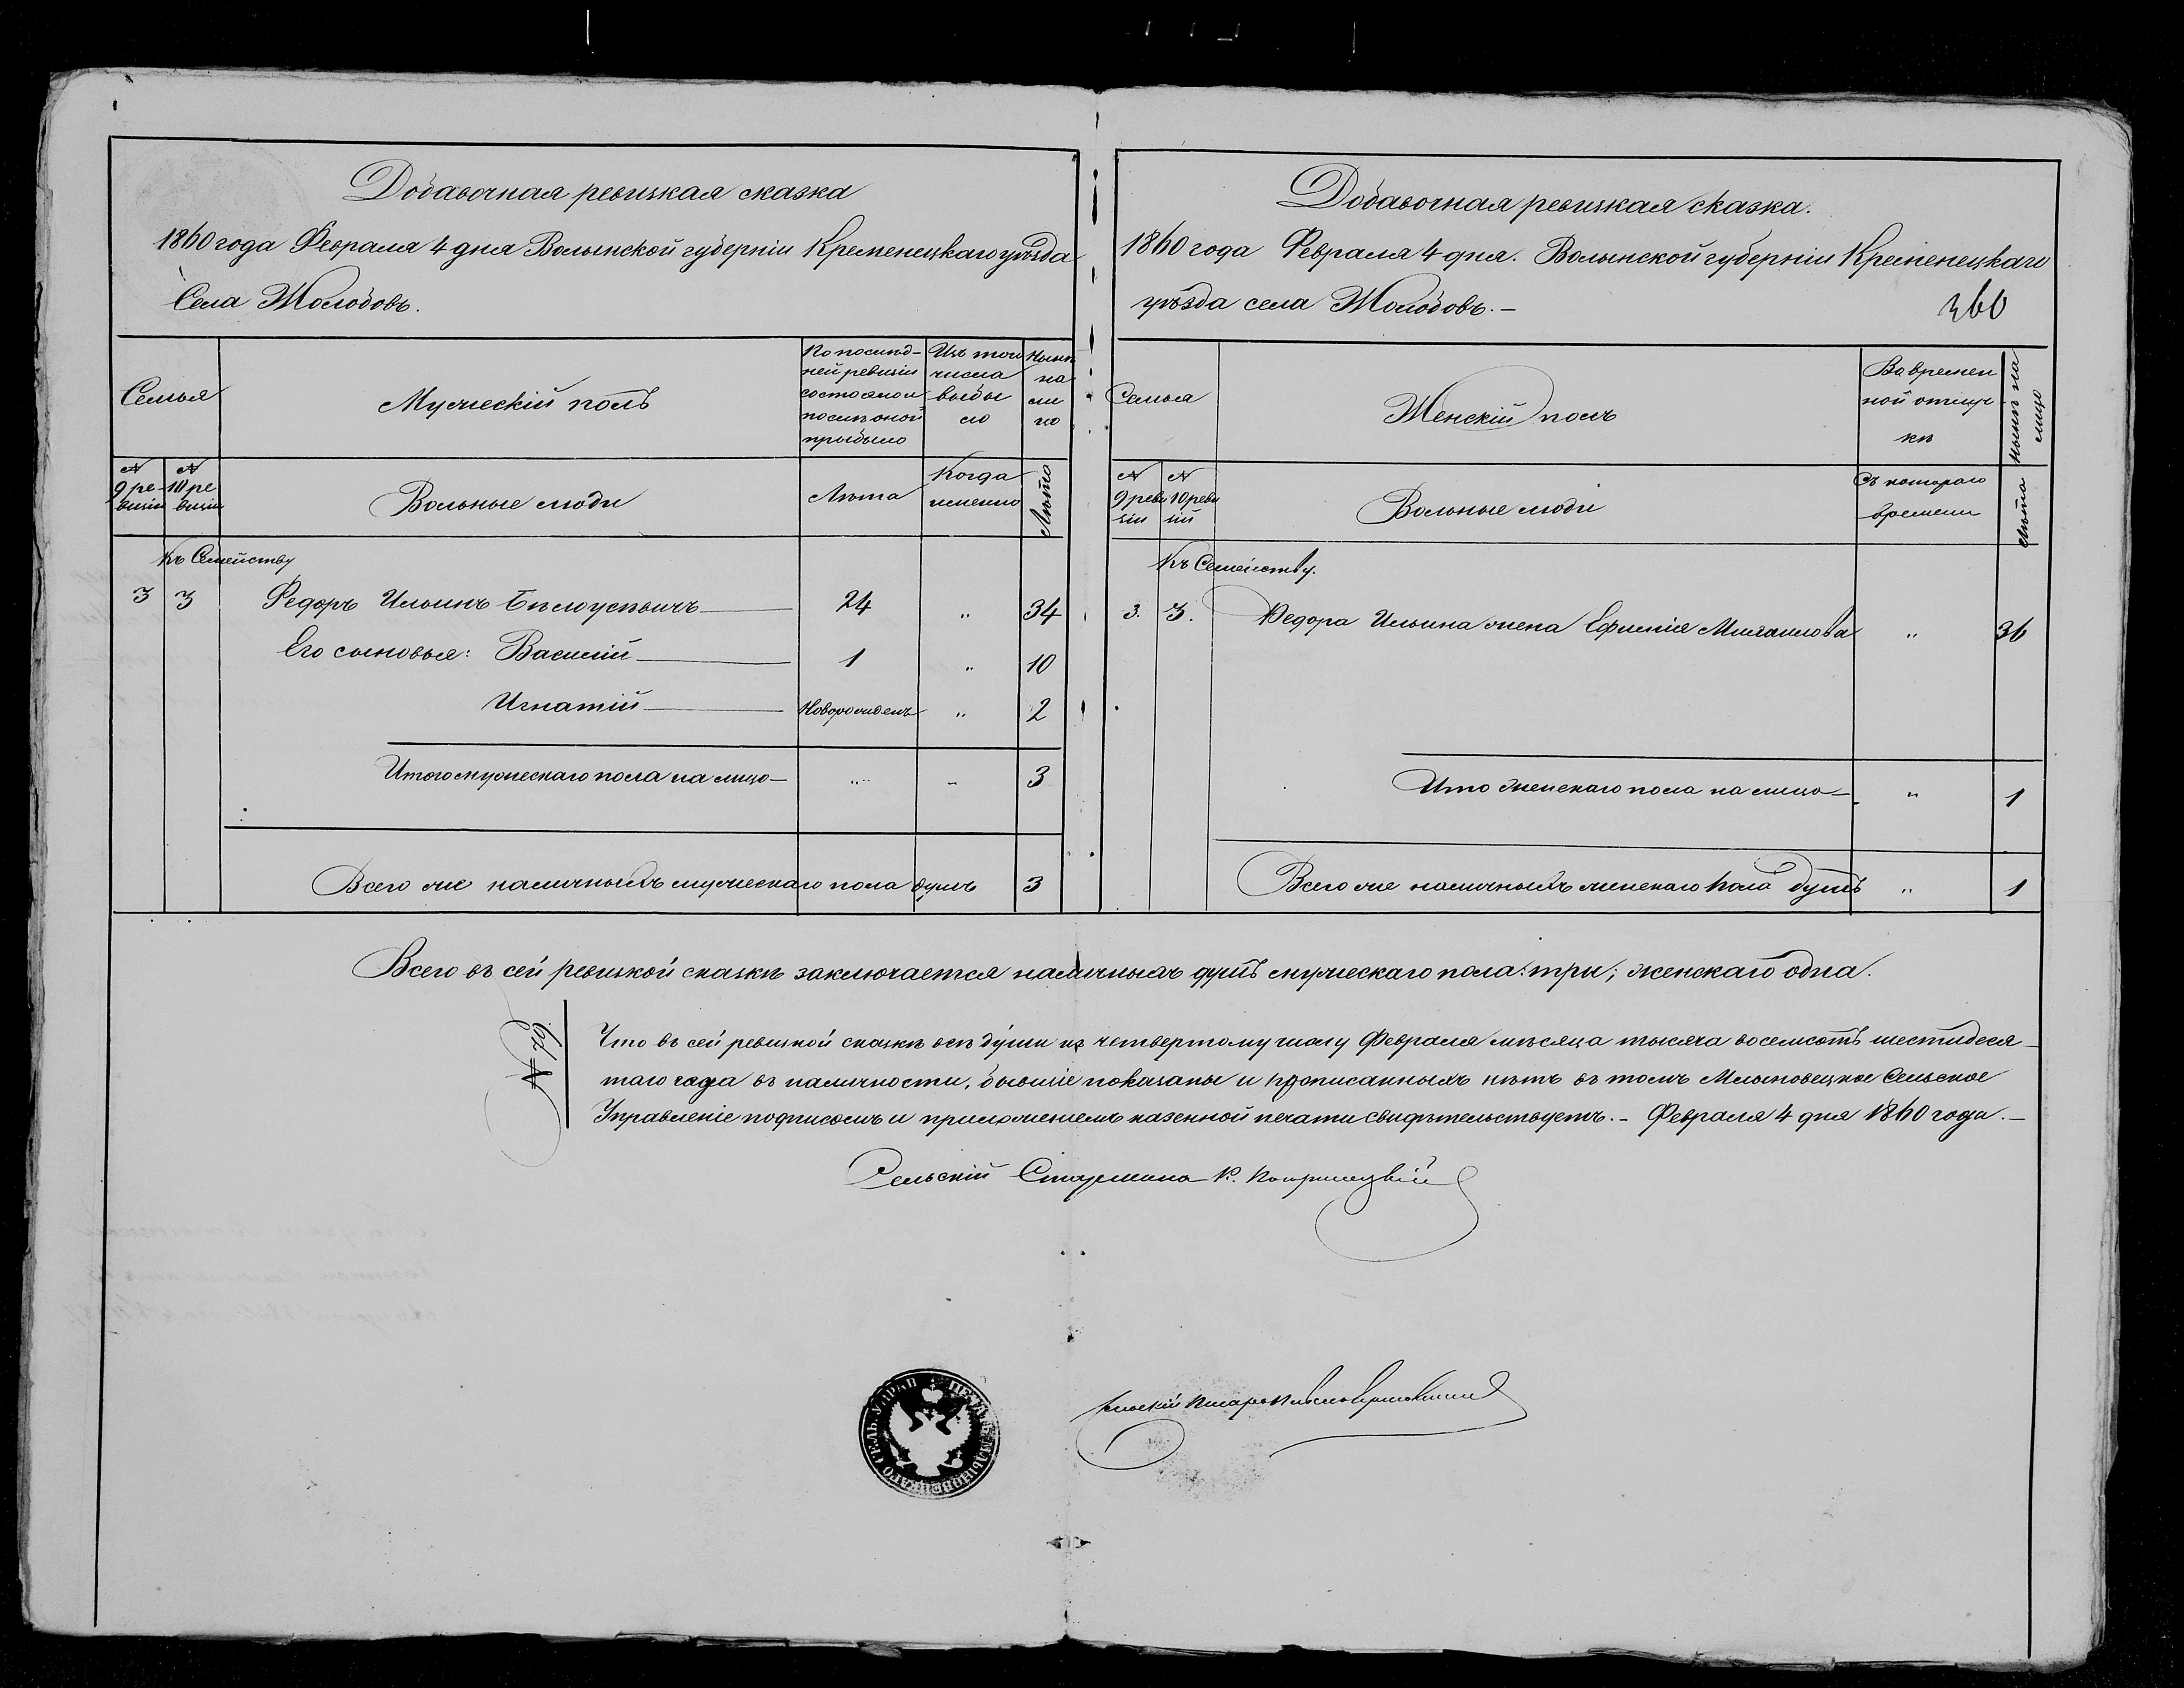 Добавочная ревизкая сказка
1860 года Февраля 4 дня Волынской губерніи Кременецкаго уѣзда
Села Жолобовъ.
Семья
Мужескій полъ
По послѣд-
ней ревизіи
состояло и
послѣ оной
прибыло
Изъ того
числа
выбы
ло
Нынѣ
на
ли
цо
№
9 ре-
визіи
№
10 ре
визіи
Вольные люди
Лѣта
Когда
именно
Лѣта
Къ Семейству
3 3 Федоръ Ильинъ Бѣлоусъвичъ 24 " 34
Его сыновья: Василій 1 " 10
Игнатій Новорожденъ " 2
Итого мужескаго пола на лицо — " " 3
Всего же наличныхъ мужескаго пола душъ 3
Добавочная ревизкая сказка.
1860 года Февраля 4 дня. Волынской губерніи Кременецкаго
уѣзда села Жолобовъ. —
360
Семья
Женскій полъ
Во времен
ной отлуч
кѣ
нынѣ на
лицо
№
9 реви
зіи
№
10 реви
зіи
Вольные люди
Съ котораго
времени
Лѣта
Къ Семейству.
3. 3. Федора Ильина жена Ефимія Михаилова " 36
Ито женскаго пола на лицо — " 1
Всего же наличныхъ женскаго пола душъ " 1
Всего въ сей ревизкой сказкѣ заключается наличныхъ душъ мужескаго пола: три; женскаго одна.
№ 79
Что въ сей ревизкой сказкѣ всѣ души къ четвертому числу Февраля мѣсяца тысяча восемсотъ шестидеся
таго года въ наличности, бывшіе показаны и прописанныхъ нѣтъ въ томъ Млыновецкое Сельское
Управленіе подписомъ и приложеніемъ казенной печати свидѣтельствуетъ. — Февраля 4 дня 1860 года. —
Сельскій Старшина К.
Сельскій Писарь
МЛЫНОВЕЦКАГО СЕЛЬ: УПРАВ